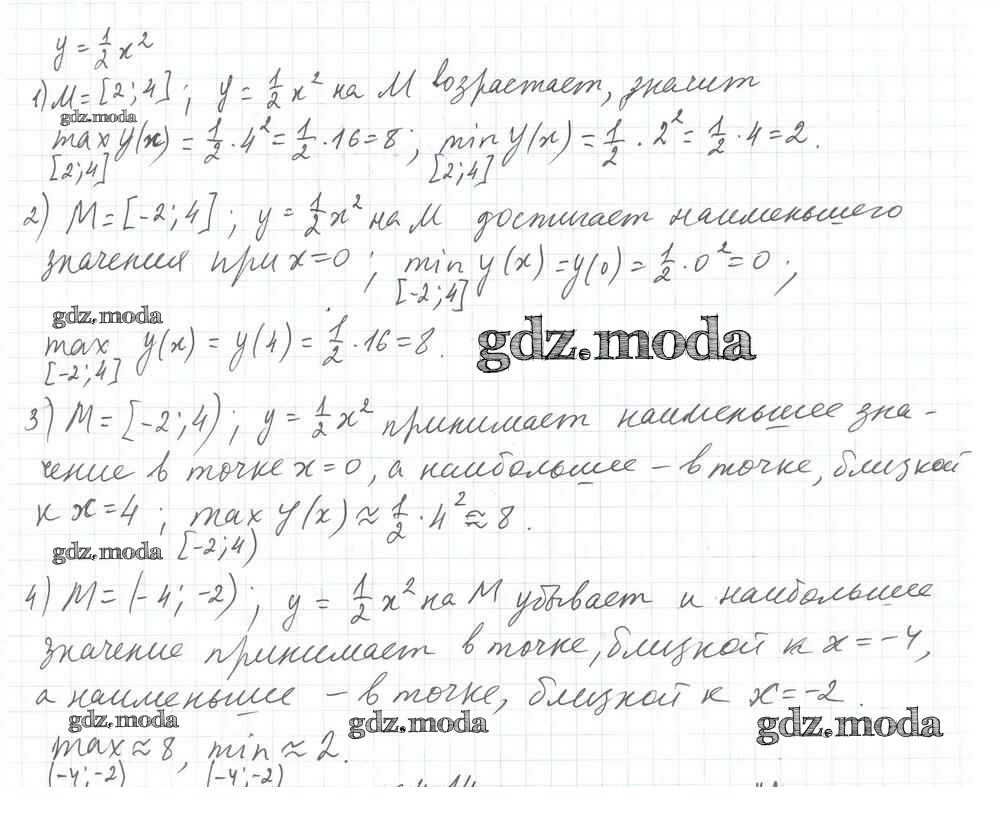 y = 1/2 x²
1) M = [2; 4]; y = 1/2 x² на M возрастает, значит
gdz.moda
max y(x) = 1/2 · 4² = 1/2 · 16 = 8; min y(x) = 1/2 · 2² = 1/2 · 4 = 2.
[2;4] [2;4]
2) M = [-2; 4]; y = 1/2 x² на M достигает наименьшего
значения при x = 0; min y(x) = y(0) = 1/2 · 0² = 0;
[-2;4]
gdz.moda
max y(x) = y(4) = 1/2 · 16 = 8.
[-2;4]
gdz.moda
3) M = [-2; 4); y = 1/2 x² принимает наименьшее зна-
чение в точке x = 0, а наибольшее – в точке, близкой
к x = 4; max y(x) ≈ 1/2 · 4² ≈ 8.
gdz.moda [-2;4)
4) M = (-4; -2); y = 1/2 x² на M убывает и наибольшее
значение принимает в точке, близкой к x = -4,
а наименьшее – в точке, близкой к x = -2.
gdz.moda gdz.moda gdz.moda
max ≈ 8, min ≈ 2.
(-4;-2) (-4;-2)